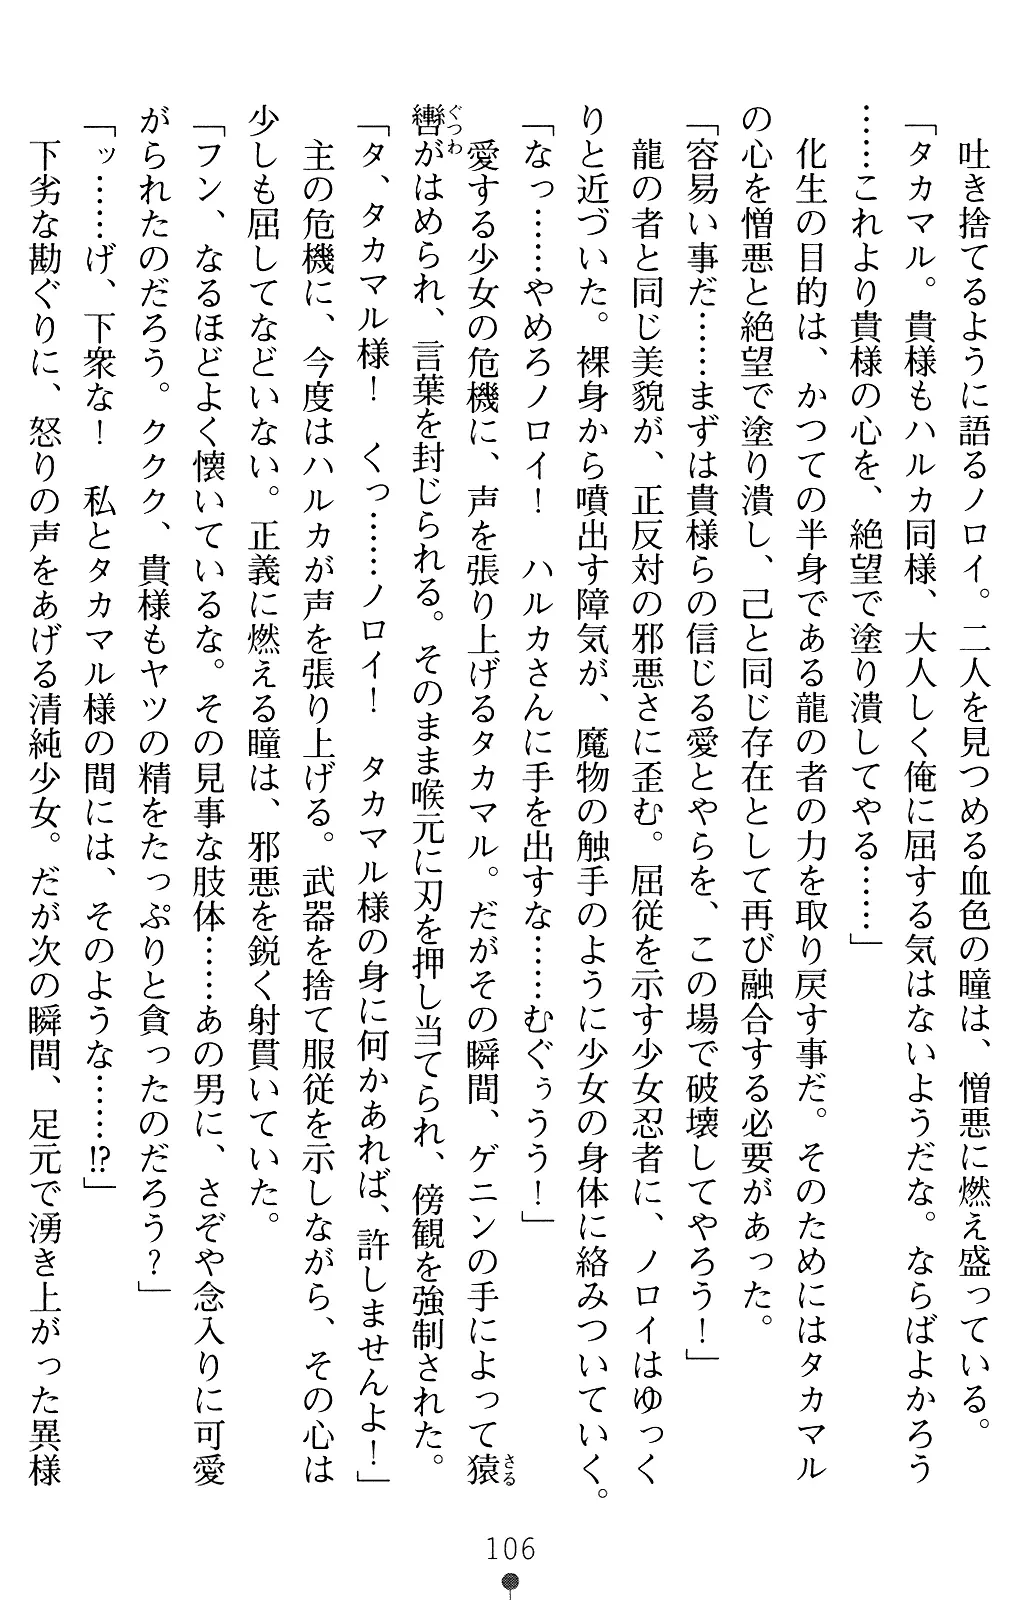 吐き捨てるように語るノロイ。二人を見つめる血色の瞳は、憎悪に燃え盛っている。
「タカマル。貴様もハルカ同様、大人しく俺に屈する気はないようだな。ならばよかろう
……これより貴様の心を、絶望で塗り潰してやる……」
化生の目的は、かつての半身である龍の者の力を取り戻す事だ。そのためにはタカマル
の心を憎悪と絶望で塗り潰し、己と同じ存在として再び融合する必要があった。
「容易い事だ……まずは貴様らの信じる愛とやらを、この場で破壊してやろう！」
龍の者と同じ美貌が、正反対の邪悪さに歪む。屈従を示す少女忍者に、ノロイはゆっく
りと近づいた。裸身から噴出す障気が、魔物の触手のように少女の身体に絡みついていく。
「なっ……やめろノロイ！　ハルカさんに手を出すな……むぐぅうう！」
愛する少女の危機に、声を張り上げるタカマル。だがその瞬間、ゲニンの手によって猿さる
轡ぐつわがはめられ、言葉を封じられる。そのまま喉元に刃を押し当てられ、傍観を強制された。
「タ、タカマル様！　くっ……ノロイ！　タカマル様の身に何かあれば、許しませんよ！」
主の危機に、今度はハルカが声を張り上げる。武器を捨て服従を示しながら、その心は
少しも屈してなどいない。正義に燃える瞳は、邪悪を鋭く射貫いていた。
「フン、なるほどよく懐いているな。その見事な肢体……あの男に、さぞや念入りに可愛
がられたのだろう。ククク、貴様もヤツの精をたっぷりと貪ったのだろう？」
「ッ……げ、下衆な！　私とタカマル様の間には、そのような……⁉」
下劣な勘ぐりに、怒りの声をあげる清純少女。だが次の瞬間、足元で湧き上がった異様
106